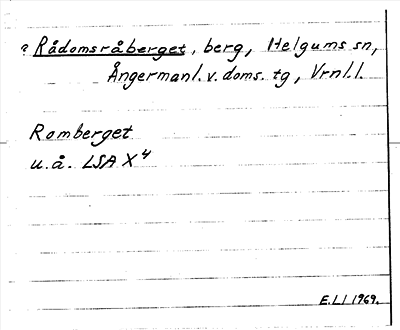 ? Rådomsråberget, berg, Helgums sn,
Ångermanl. v. doms. tg, Vrnl. l.
Romberget
u.å. LSA X4
E.L l 1969.